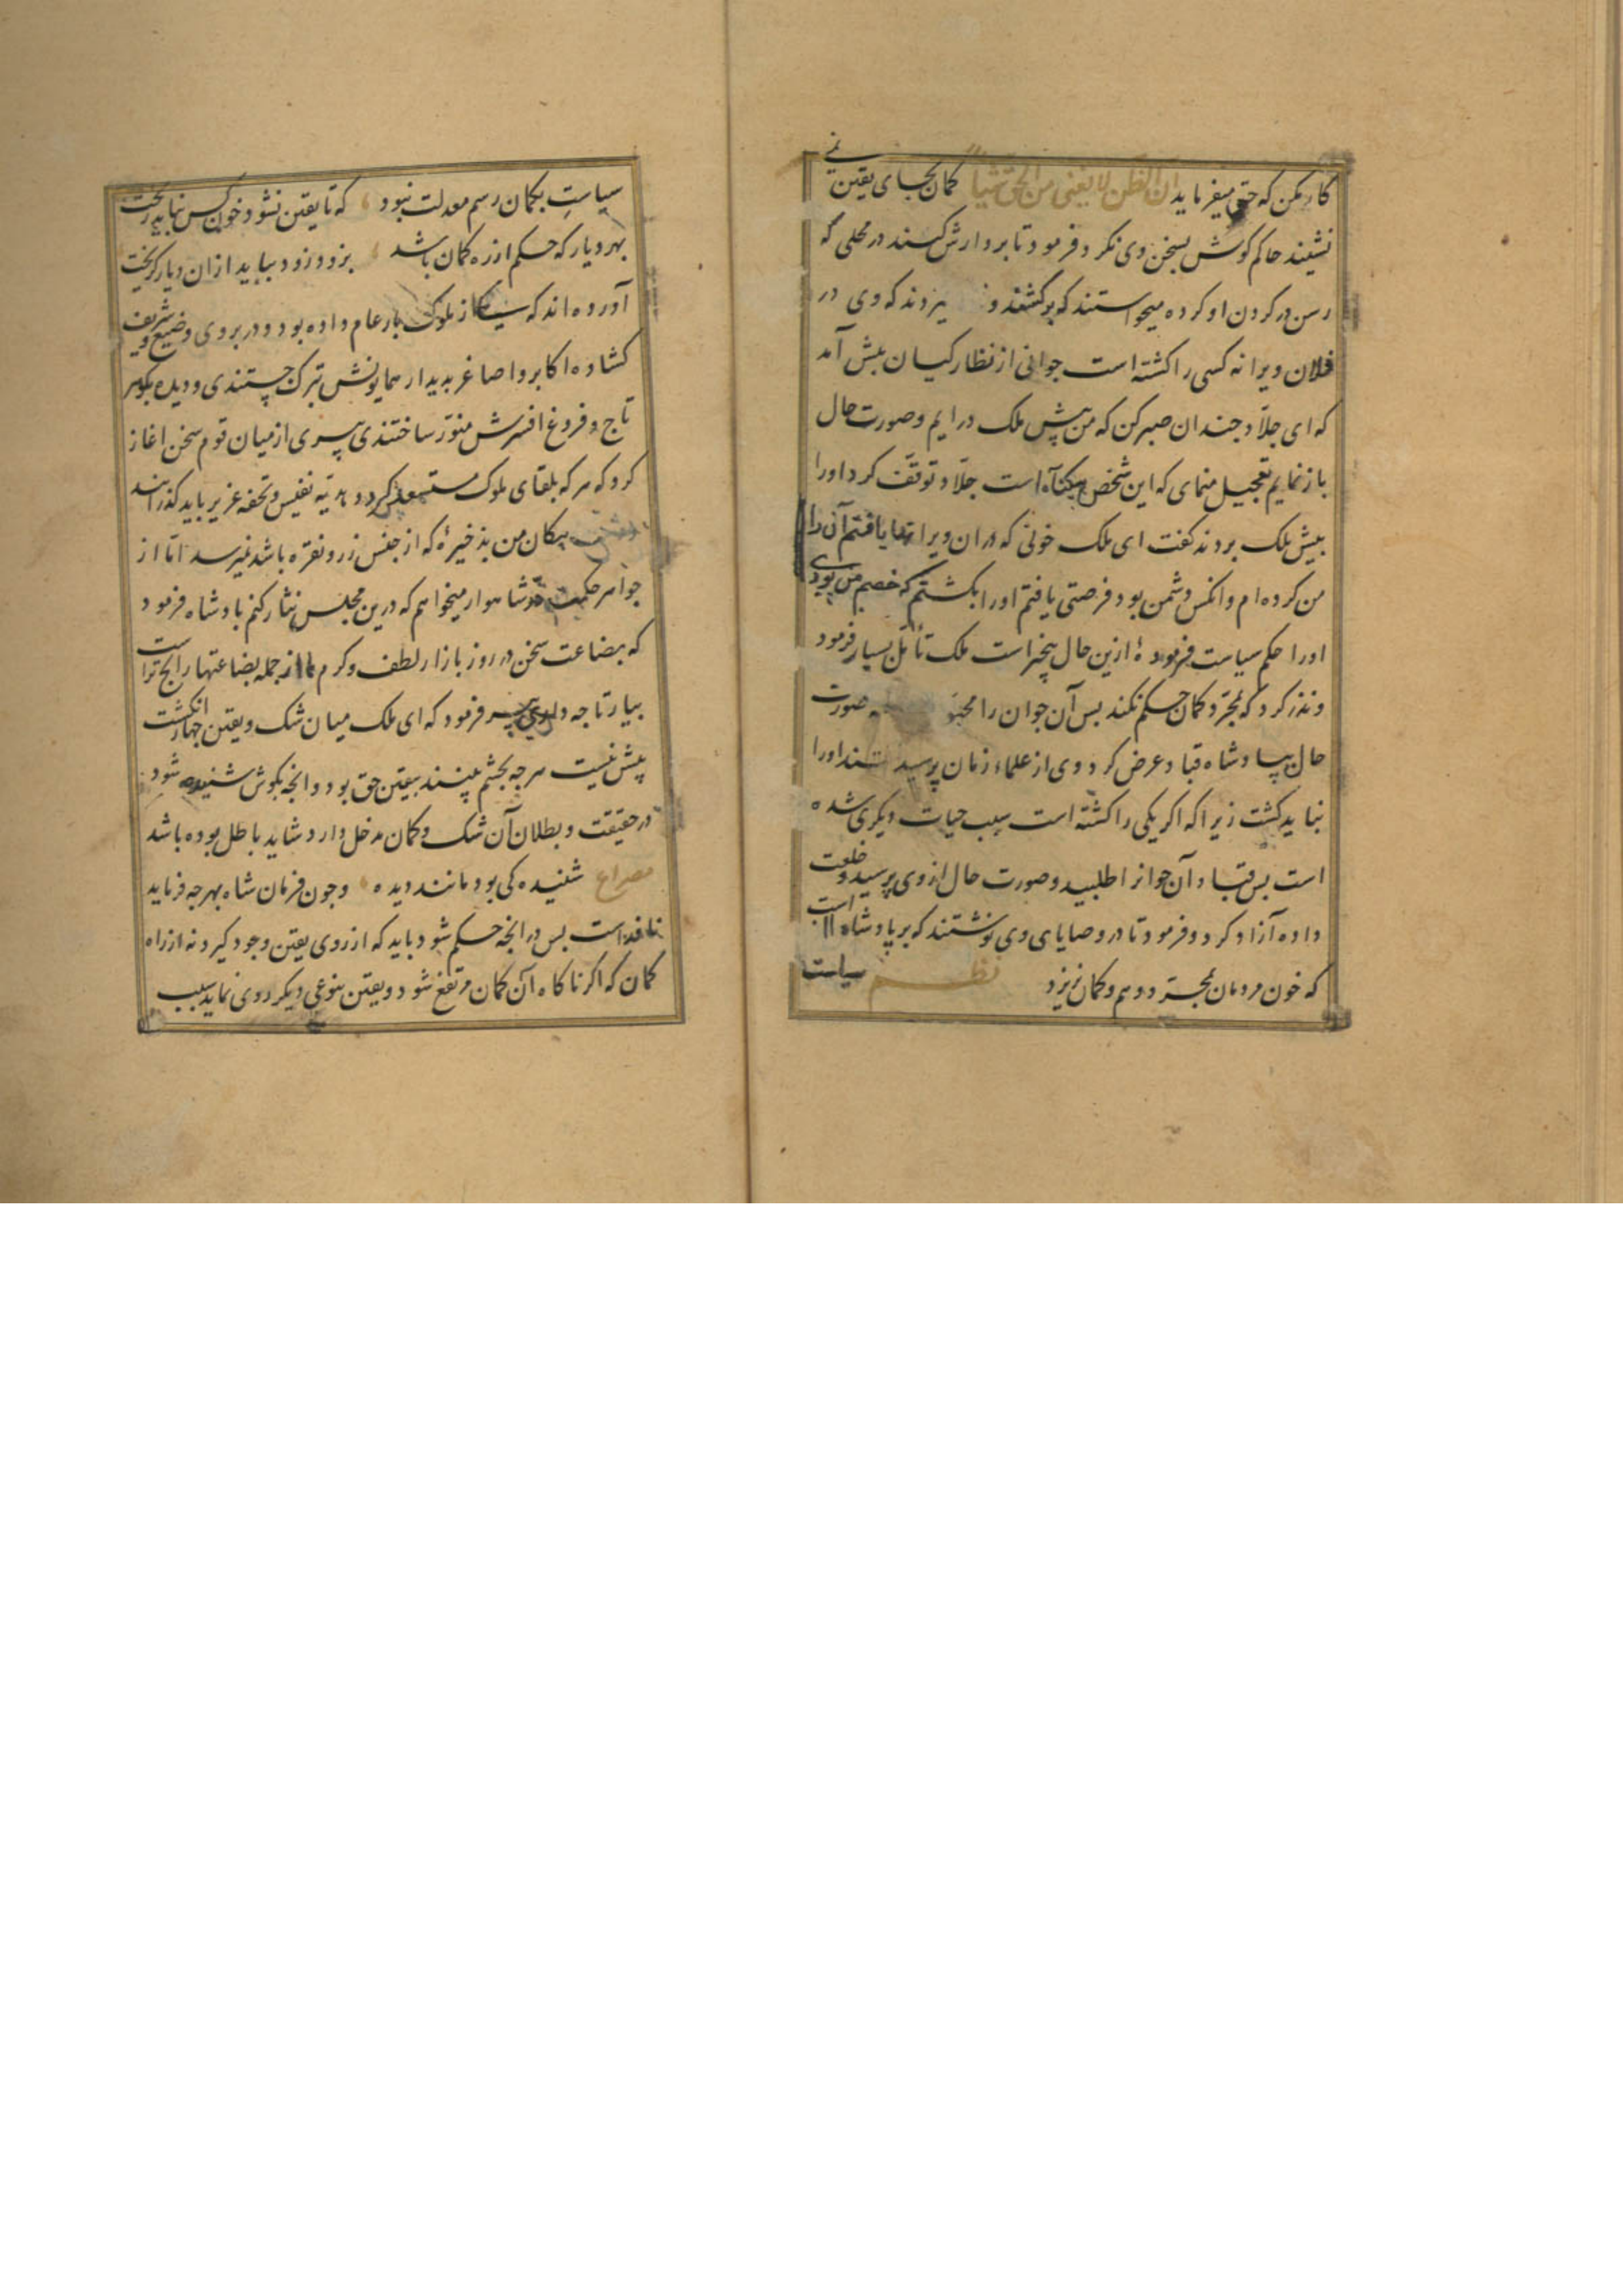 کار مکن که حق میفرماید ان الظن لا یغنی من الحق شیا کمان بجای یقین نمی
نشیند حاکم کوش بسخن وی نکرد و فرمود تا بر دارش کنند در محلی که
رسن در کردن او کرده میخواستند که برکشند و میزدند که وی در
فلان ویرانه کسی را کشته است جوانی از نظارکیان بیش آمد
که ای جلاد جندان صبر کن که من پیش ملک درایم و صورت حال
باز نمایم تعجیل منمای که این شخص بیکناه است جلاد توقف کرد او را
بیش ملک بردند کفت ای ملک خونی که در ان ویرانه یافتم آن را
من کرده ام و انکس دشمن بود فرصتی یافتم او را بکشتم که خصم من بود
او را حکم سیاست فرموده ازین حال بیخبر است ملک تأمل بسیار فرمود
و نذر کرد که بمجرد کمان حکم نکند بس آن جوان را صورت
حال بپادشاه قباد عرض کرد وی از علماء زمان پرسید او را
نباید کشت زیرا که اکر یکی را کشته است سبب حیات دیکری شده
است بس قباد آن جوانرا طلبید و صورت حال از وی پرسید و خلعت
داده آزاد کرد و فرمود تا در وصایای وی نوشتند که بر پادشاه است
که خون مردمان بمجرد وهم و کمان نریزد نظم سیاست
سیاست بکمان رسم معدلت نبود که تا یقین نشود خون کس نباید ریخت
بهر دیار که حکم از ره کمان باشد بزودی زود بباید ازان دیار کریخت
آورده اند که یکی از ملوک بار عام داده بود و در بروی وضیع و شریف
کشاده اکابر و اصاغر بدیدار همایونش تبرک جستندی و دیده بکوهر
تاج و فروغ افسرش منور ساختندی پیری از میان قوم سخن اغاز
کرد که هر که بلقای ملوک مستسعد کردد هدیه نفیس و تحفه عزیز باید کذرانید
بیکان من بذخیرهٔ که از جنس زر و نقره باشد نمیرسد اما از
جواهر حکمت در شاهوار میخواهم که درین مجلس نثار کنم بادشاه فرمود
که بضاعت سخن در روز بازار لطف و کرم ما از جمله بضاعتها رایج تر است
بیار تا جه داری پیر فرمود که ای ملک میان شک و یقین جهار انکشت
پیش نیست هر جه بجشم بینند بیقین حق بود و انجه بکوش شنیده شود
در حقیقت و بطلان آن شک و کمان مدخل دارد شاید باطل بوده باشد
مصراع شنیده کی بود مانند دیده و جون فرمان شاه بهر جه فرماید
نافذ است بس در انجه حکم شود باید که از روی یقین وجود کیرد نه از راه
کمان که اکر ناکاه آن کمان مرتفع شود و یقین بنوعی دیکر روی نماید سبب